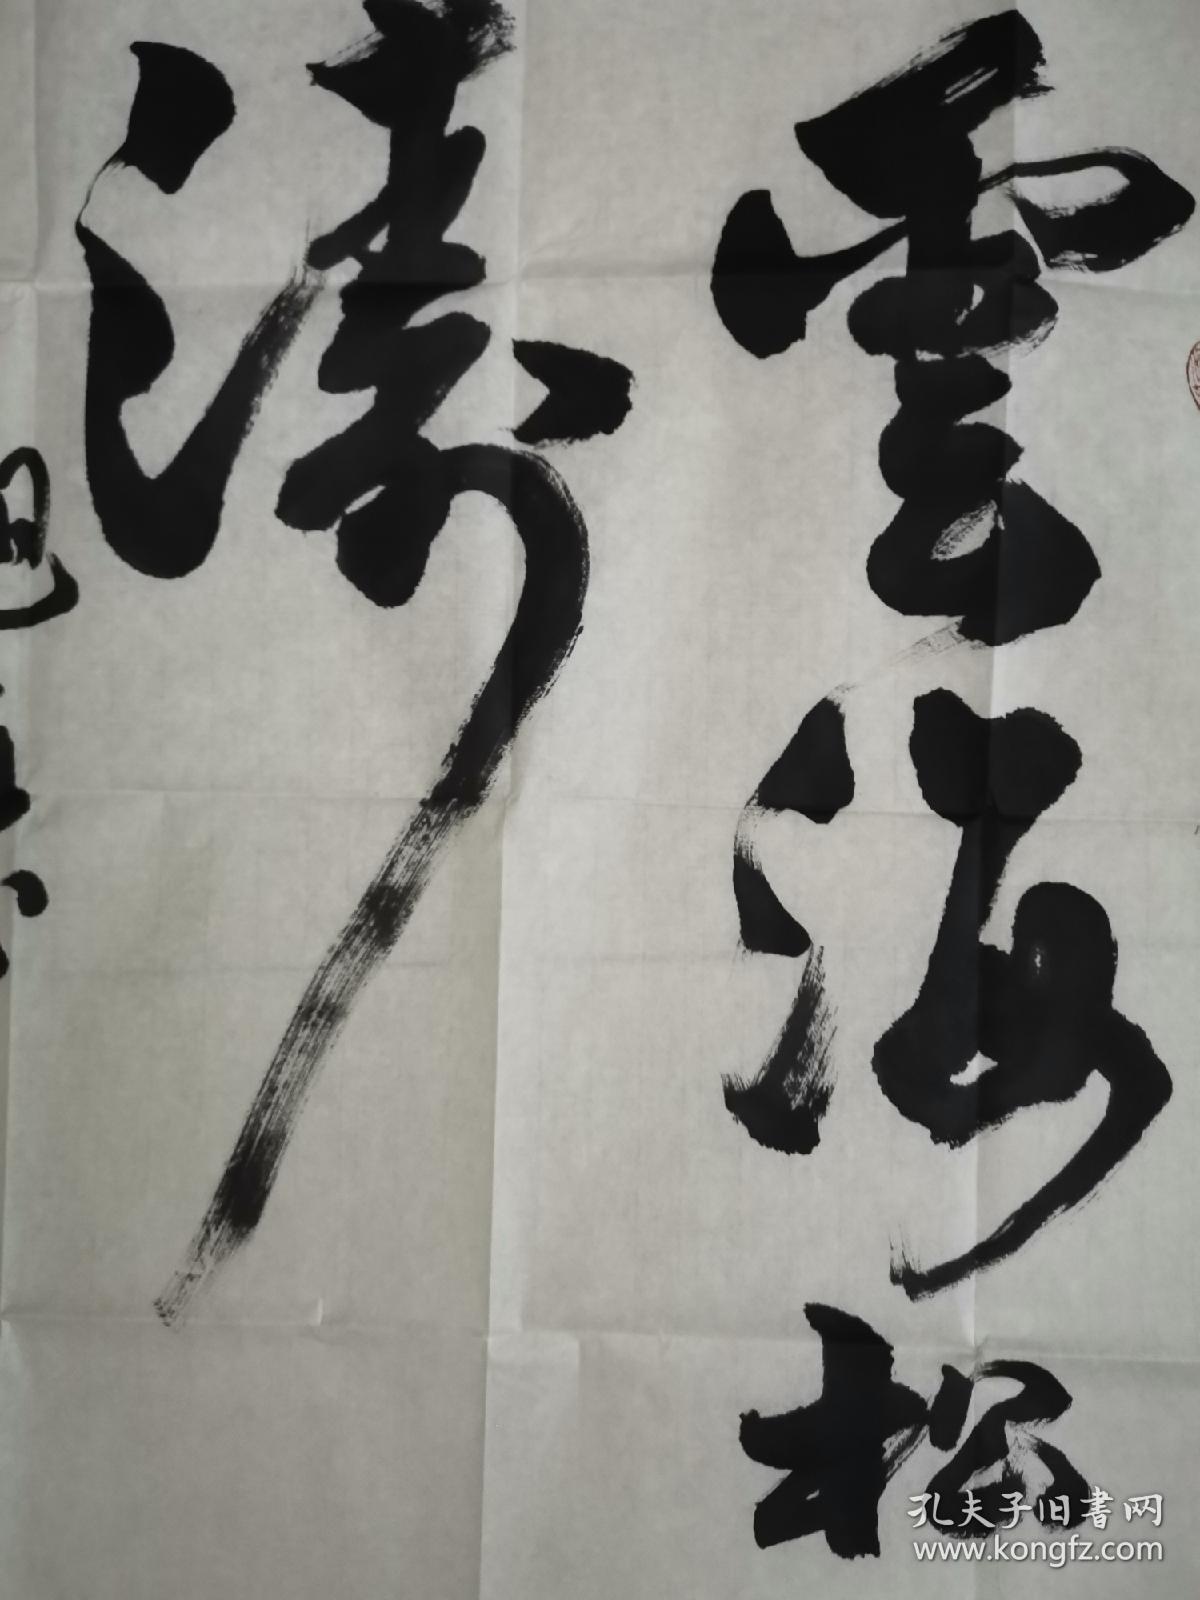 雲海松
濤
孔夫子旧書网
www.kongfz.com